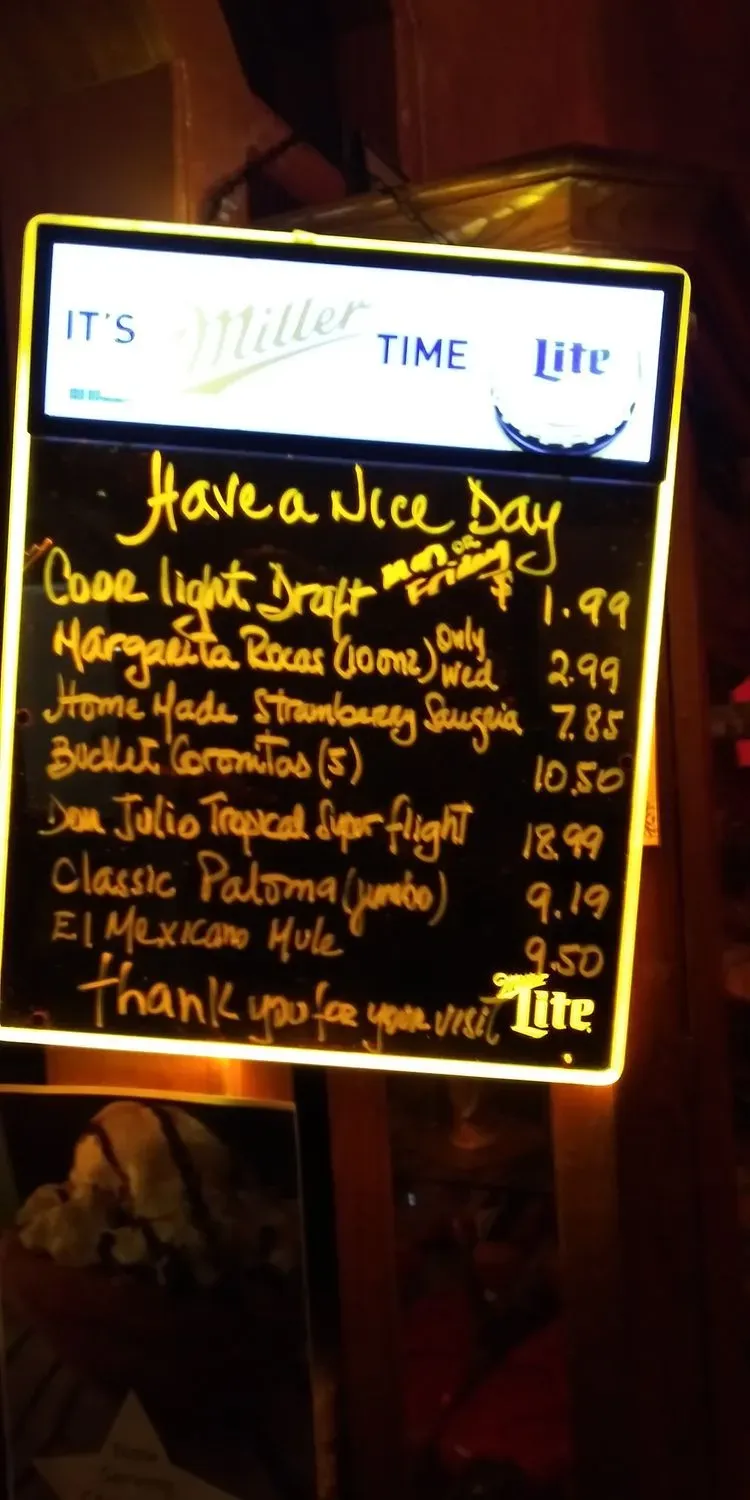 IT'S Miller TIME Lite
Have a Nice Day
Coor light Draft Mon or Friday $ 1.99
Margarita Rocas (10onz) Only Wed 2.99
Home Made Strawberry Sangria 7.85
Bucket Coronitas (5) 10.50
Don Julio Tropical Super flight 18.99
Classic Paloma (jumbo) 9.19
El Mexicano Mule 9.50
thank you for your visit
Miller Lite